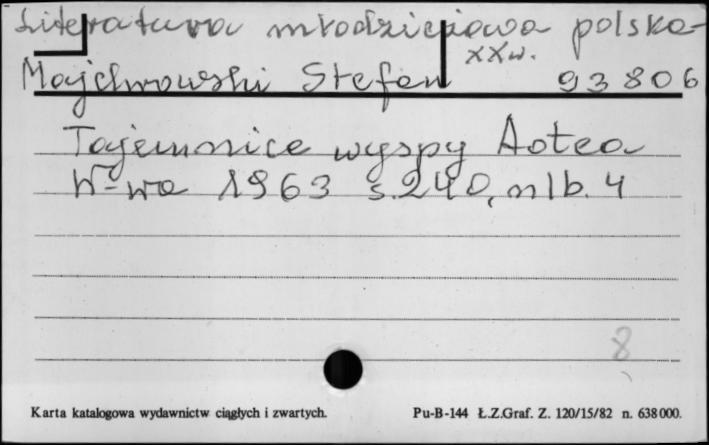 Literatura młodzieżowa polska
XX w.
Majchrowski Stefan 93806
Tajemnice wyspy Aotea
W-wa 1963 s. 240, nlb. 4
8
Karta katalogowa wydawnictw ciągłych i zwartych. Pu-B-144 Ł.Z.Graf. Z. 120/15/82 n. 638000.